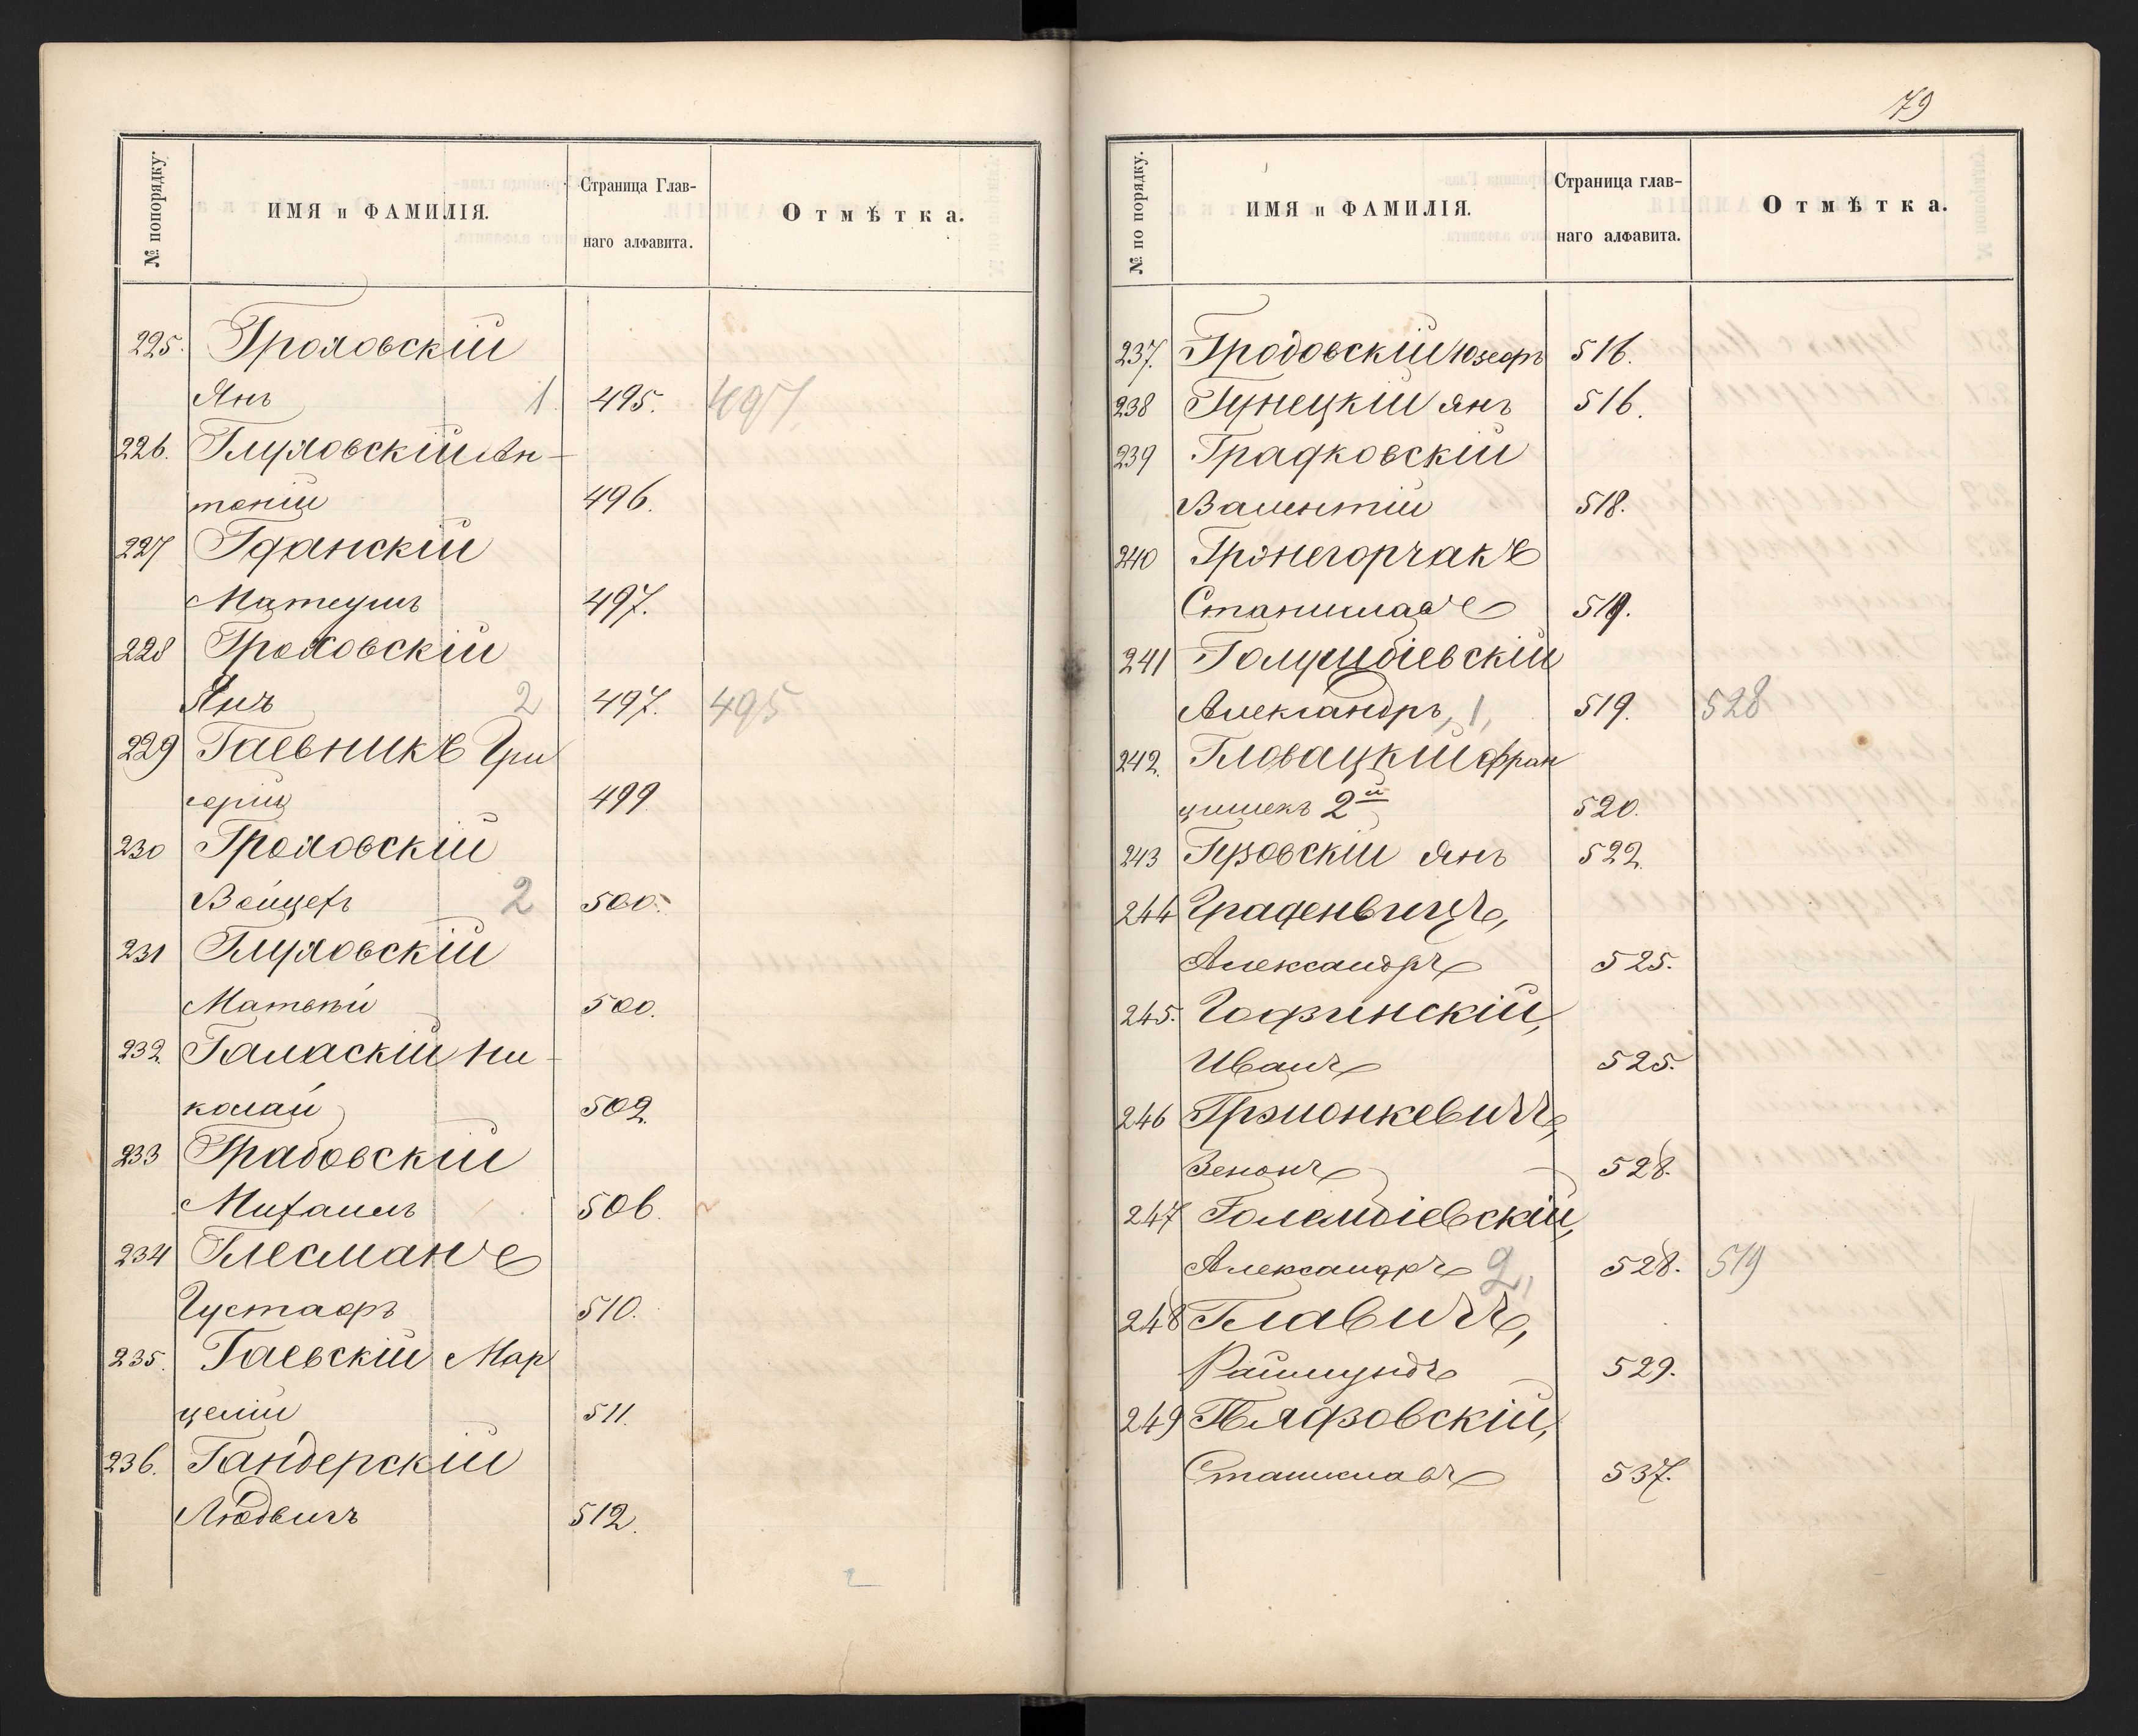 № попорядку.
ИМЯ и ФАМИЛІЯ.
Страница Глав-
наго алфавита.
Отмѣтка.
225. Гроховскій
Янъ 1. 495. 497.
226. Глуховскій Ан-
тоній 496.
227 Гданскій
Матеушъ 497.
228 Гроховскій
Янъ 2 497. 495
229 Гаевникъ Гри
горій 499
230 Гроховскій
Войцехъ 2 500.
231 Глуховскій
Матвѣй 500.
232 Галаскій Ни-
колай 502.
233 Грабовскій
Михаилъ 506.
234 Глесманъ
Густафъ 510.
235. Гаевскій Мар
целій 511.
236. Гандерскій
Людвигъ 512.
79
№ по порядку.
ИМЯ и ФАМИЛІЯ.
Страница глав-
наго алфавита.
Отмѣтка.
237. Гродовскій Юзефъ 516.
238 Гунецкій Янъ 516.
239 Градковскій
Валентій 518.
240 Грэнегорчакъ
Станиславъ 519.
241
Александръ, 1, 519. 528
242. Гловацкій Фран
цишекъ 2й 520.
243 Гузовскій Янъ 522.
244
Александръ 525.
245.
Иванъ 525.
246
Зенонъ 528.
247 Голембіевскій,
Александръ 2, 528. 519
248 Главичъ,
Раймундъ 529.
249
Станиславъ 537.